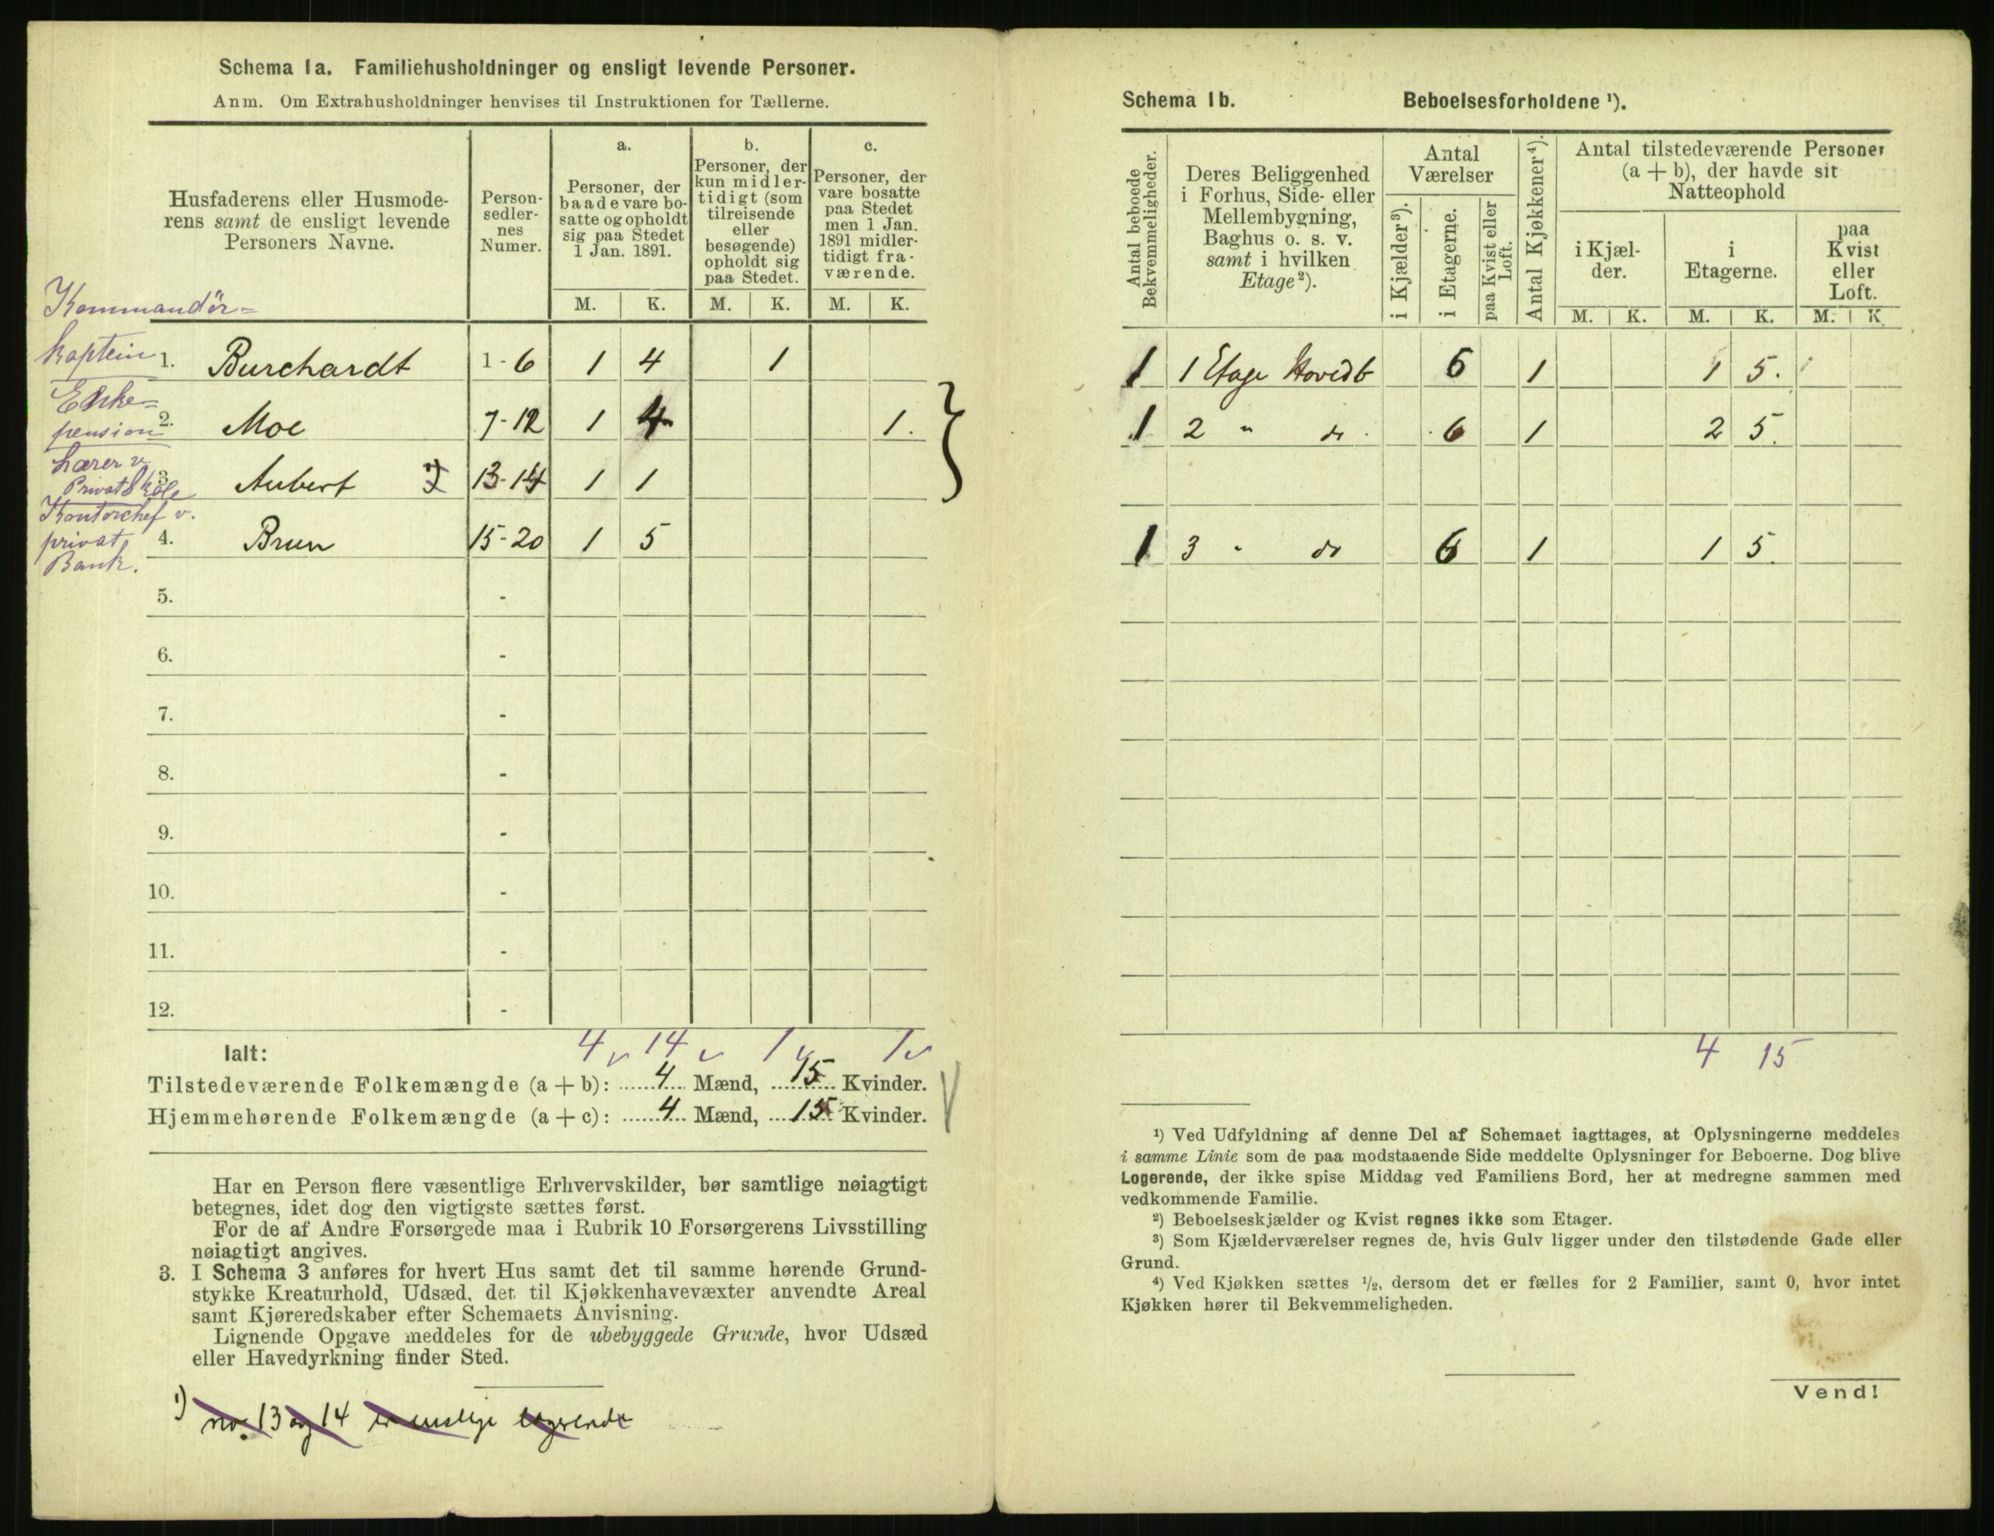 Schema 1a. Familiehusholdninger og ensligt levende Personer.
Anm. Om Extrahusholdninger henvises til Instruktionen for Tællerne.
Husfaderens eller Husmode-
rens samt de ensligt levende
Personers Navne.
Person-
sedler-
nes
Numer.
a.
Personer, der
baade vare bo-
satte og opholdt
sig paa Stedet
1 Jan. 1891.
b.
Personer, der
kun midler-
tidigt (som
tilreisende
eller
besøgende)
opholdt sig
paa Stedet.
c.
Personer, der
vare bosatte
paa Stedet
men 1 Jan.
1891 midler-
tidigt fra-
værende.
M. K. M. K. M. K.
Kommandör=
kaptein 1. Burchardt 1-6 1 4 1
Enke=
pension 2. Moe 7-12 1 4 1.
Lærer v.
Privat Skole 3. Aubert 1) 13-14 1 1
Kontorchef v.
privat 4. Brun 15-20 1 5
Bank.
5. -
6. -
7. -
8. -
9. -
10. -
11. -
12. -
Ialt: 4 14 1 1
Tilstedeværende Folkemængde (a + b): 4 Mænd, 15 Kvinder.
Hjemmehørende Folkemængde (a + c): 4 Mænd, 15 Kvinder.
Har en Person flere væsentlige Erhvervskilder, bør samtlige nøiagtigt
betegnes, idet dog den vigtigste sættes først.
For de af Andre Forsørgede maa i Rubrik 10 Forsørgerens Livsstilling
nøiagtigt angives.
3. I Schema 3 anføres for hvert Hus samt det til samme hørende Grund-
stykke Kreaturhold, Udsæd, det til Kjøkkenhavevæxter anvendte Areal
samt Kjøreredskaber efter Schemaets Anvisning.
Lignende Opgave meddeles for de ubebyggede Grunde, hvor Udsæd
eller Havedyrkning finder Sted.
1) no. 13 og 14 er enslige logerende
Schema 1b. Beboelsesforholdene 1).
Antal beboede
Bekvemmeligheder.
Deres Beliggenhed
i Forhus, Side- eller
Mellembygning,
Baghus o. s. v.
samt i hvilken
Etage 2).
Antal
Værelser
i Kjælder 3).
i Etagerne.
paa Kvist eller
Loft.
Antal Kjøkkener 4).
Antal tilstedeværende Personer
(a + b), der havde sit
Natteophold
i Kjæl-
der.
i
Etagerne.
paa
Kvist
eller
Loft.
M. K. M. K. M. K
1 1 Etage Hovedb 6 1 1 5.
1 2 " do. 6 1 2 5.
1 3 " do 6 1 1 5.
4 15
1) Ved Udfyldning af denne Del af Schemaet iagttages, at Oplysningerne meddeles
i samme Linie som de paa modstaaende Side meddelte Oplysninger for Beboerne. Dog blive
Logerende, der ikke spise Middag ved Familiens Bord, her at medregne sammen med
vedkommende Familie.
2) Beboelseskjælder og Kvist regnes ikke som Etager.
3) Som Kjælderværelser regnes de, hvis Gulv ligger under den tilstødende Gade eller
Grund.
4) Ved Kjøkken sættes 1/2, dersom det er fælles for 2 Familier, samt 0, hvor intet
Kjøkken hører til Bekvemmeligheden.
Vend!